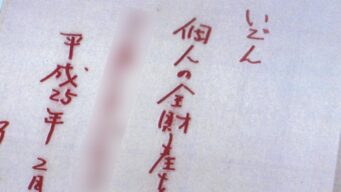 いごん
個人の全財産を
平成25年 2月